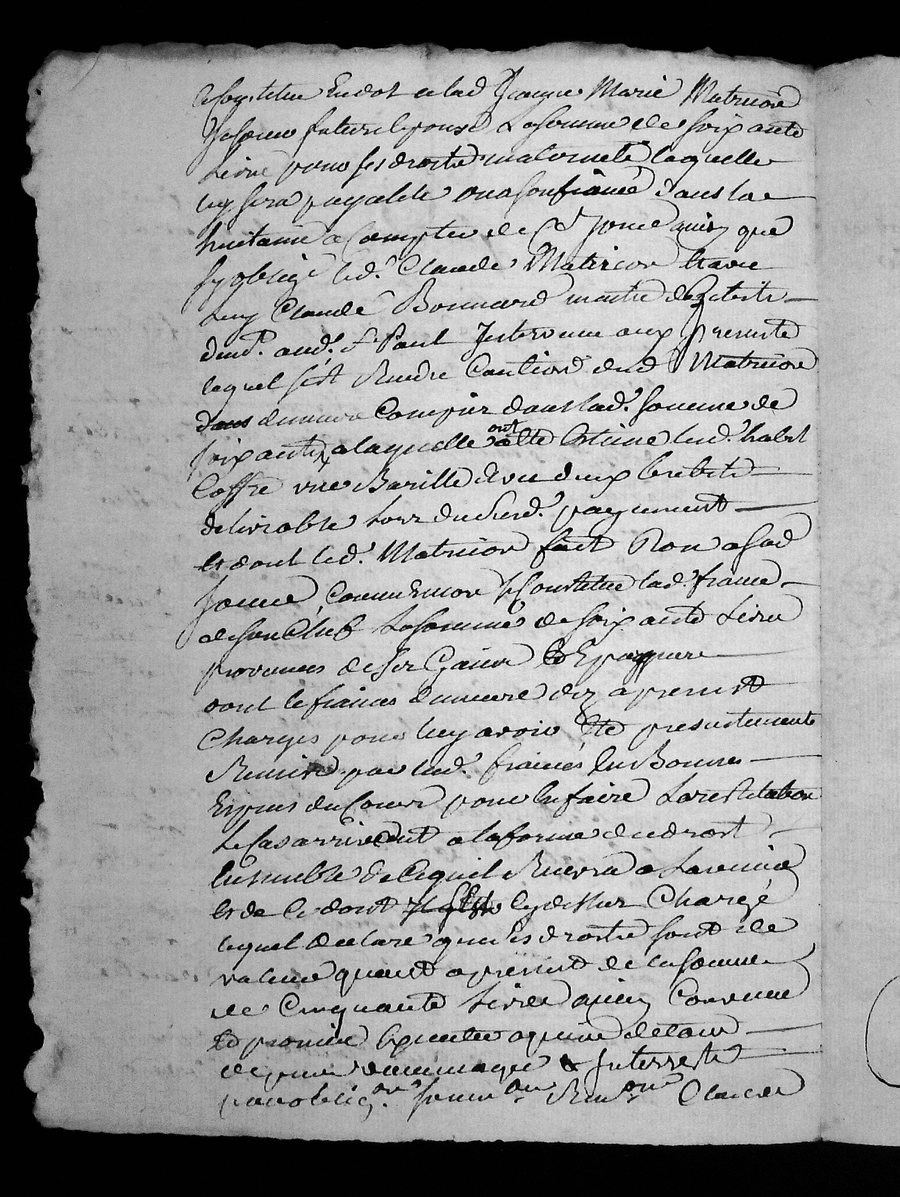 Constitue En dot a lad Jeanne Marie Matricon
sa future epouse La somme de soixante
Livre pour ses droits maternels laquelle
luy sera payable ou a son fiancé dans la
huitaine a Compter de ce jourd'huy que
sy oblige led. Claude Matricon et avec
luy Claude Bonnard maitre
aud. St Paul Intervenu aux presente
lequel s'est Rendu Caution dud Matricon
dans Compris dans lad. somme de
soixante a laquelle ont été Estimé lesd. habit
Coffre une Barille et deux brebits
delivrable Lors du susd. payement
et dont led. Matricon fait Don a sad
Comme Encor se Constitue lad. fiancé
de son Chef La somme de soixante Livre
provenues de ses Gains et Epargne
dont le fiancé demeure dez a present
Chargés pour luy avoir été presentement
Remise par lad. fiancés En Bonnes
Espces du Cours pour En faire La restitution
Le Cas arrivent a la forme du droit
Ensemble de Ce quil Recevra a Lavenir
et de Ce dont Il est Cy dessus Chargé
lequel declare que Ses droits sont de
valeur quant a present de la somme
de Cinquante Livres ainsy Convenu
et promis Executer a peine de tous
depens dommages & Interrests
par oblig.on soum.on Ren.on Clauses